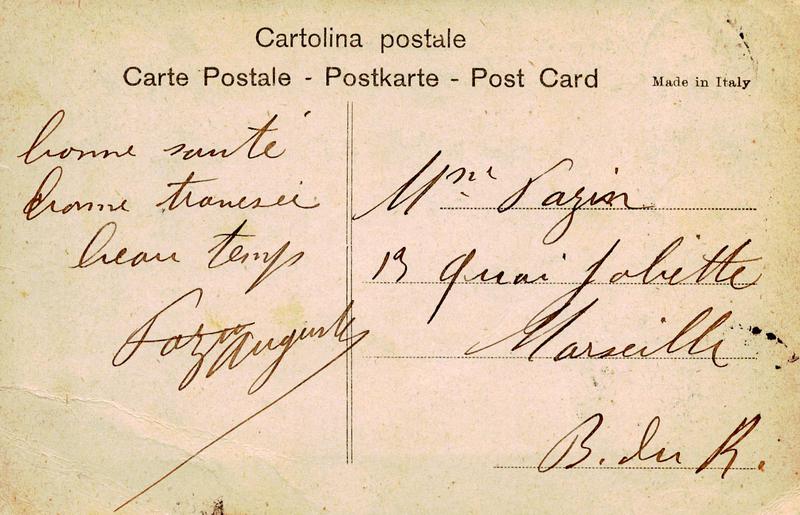 Cartolina postale
Carte Postale - Postkarte - Post Card
Made in Italy
bonne santé
bonne traversée
beau temps
Auguste
Mme Pazin
13 Quai Joliette
Marseille
B. du R.